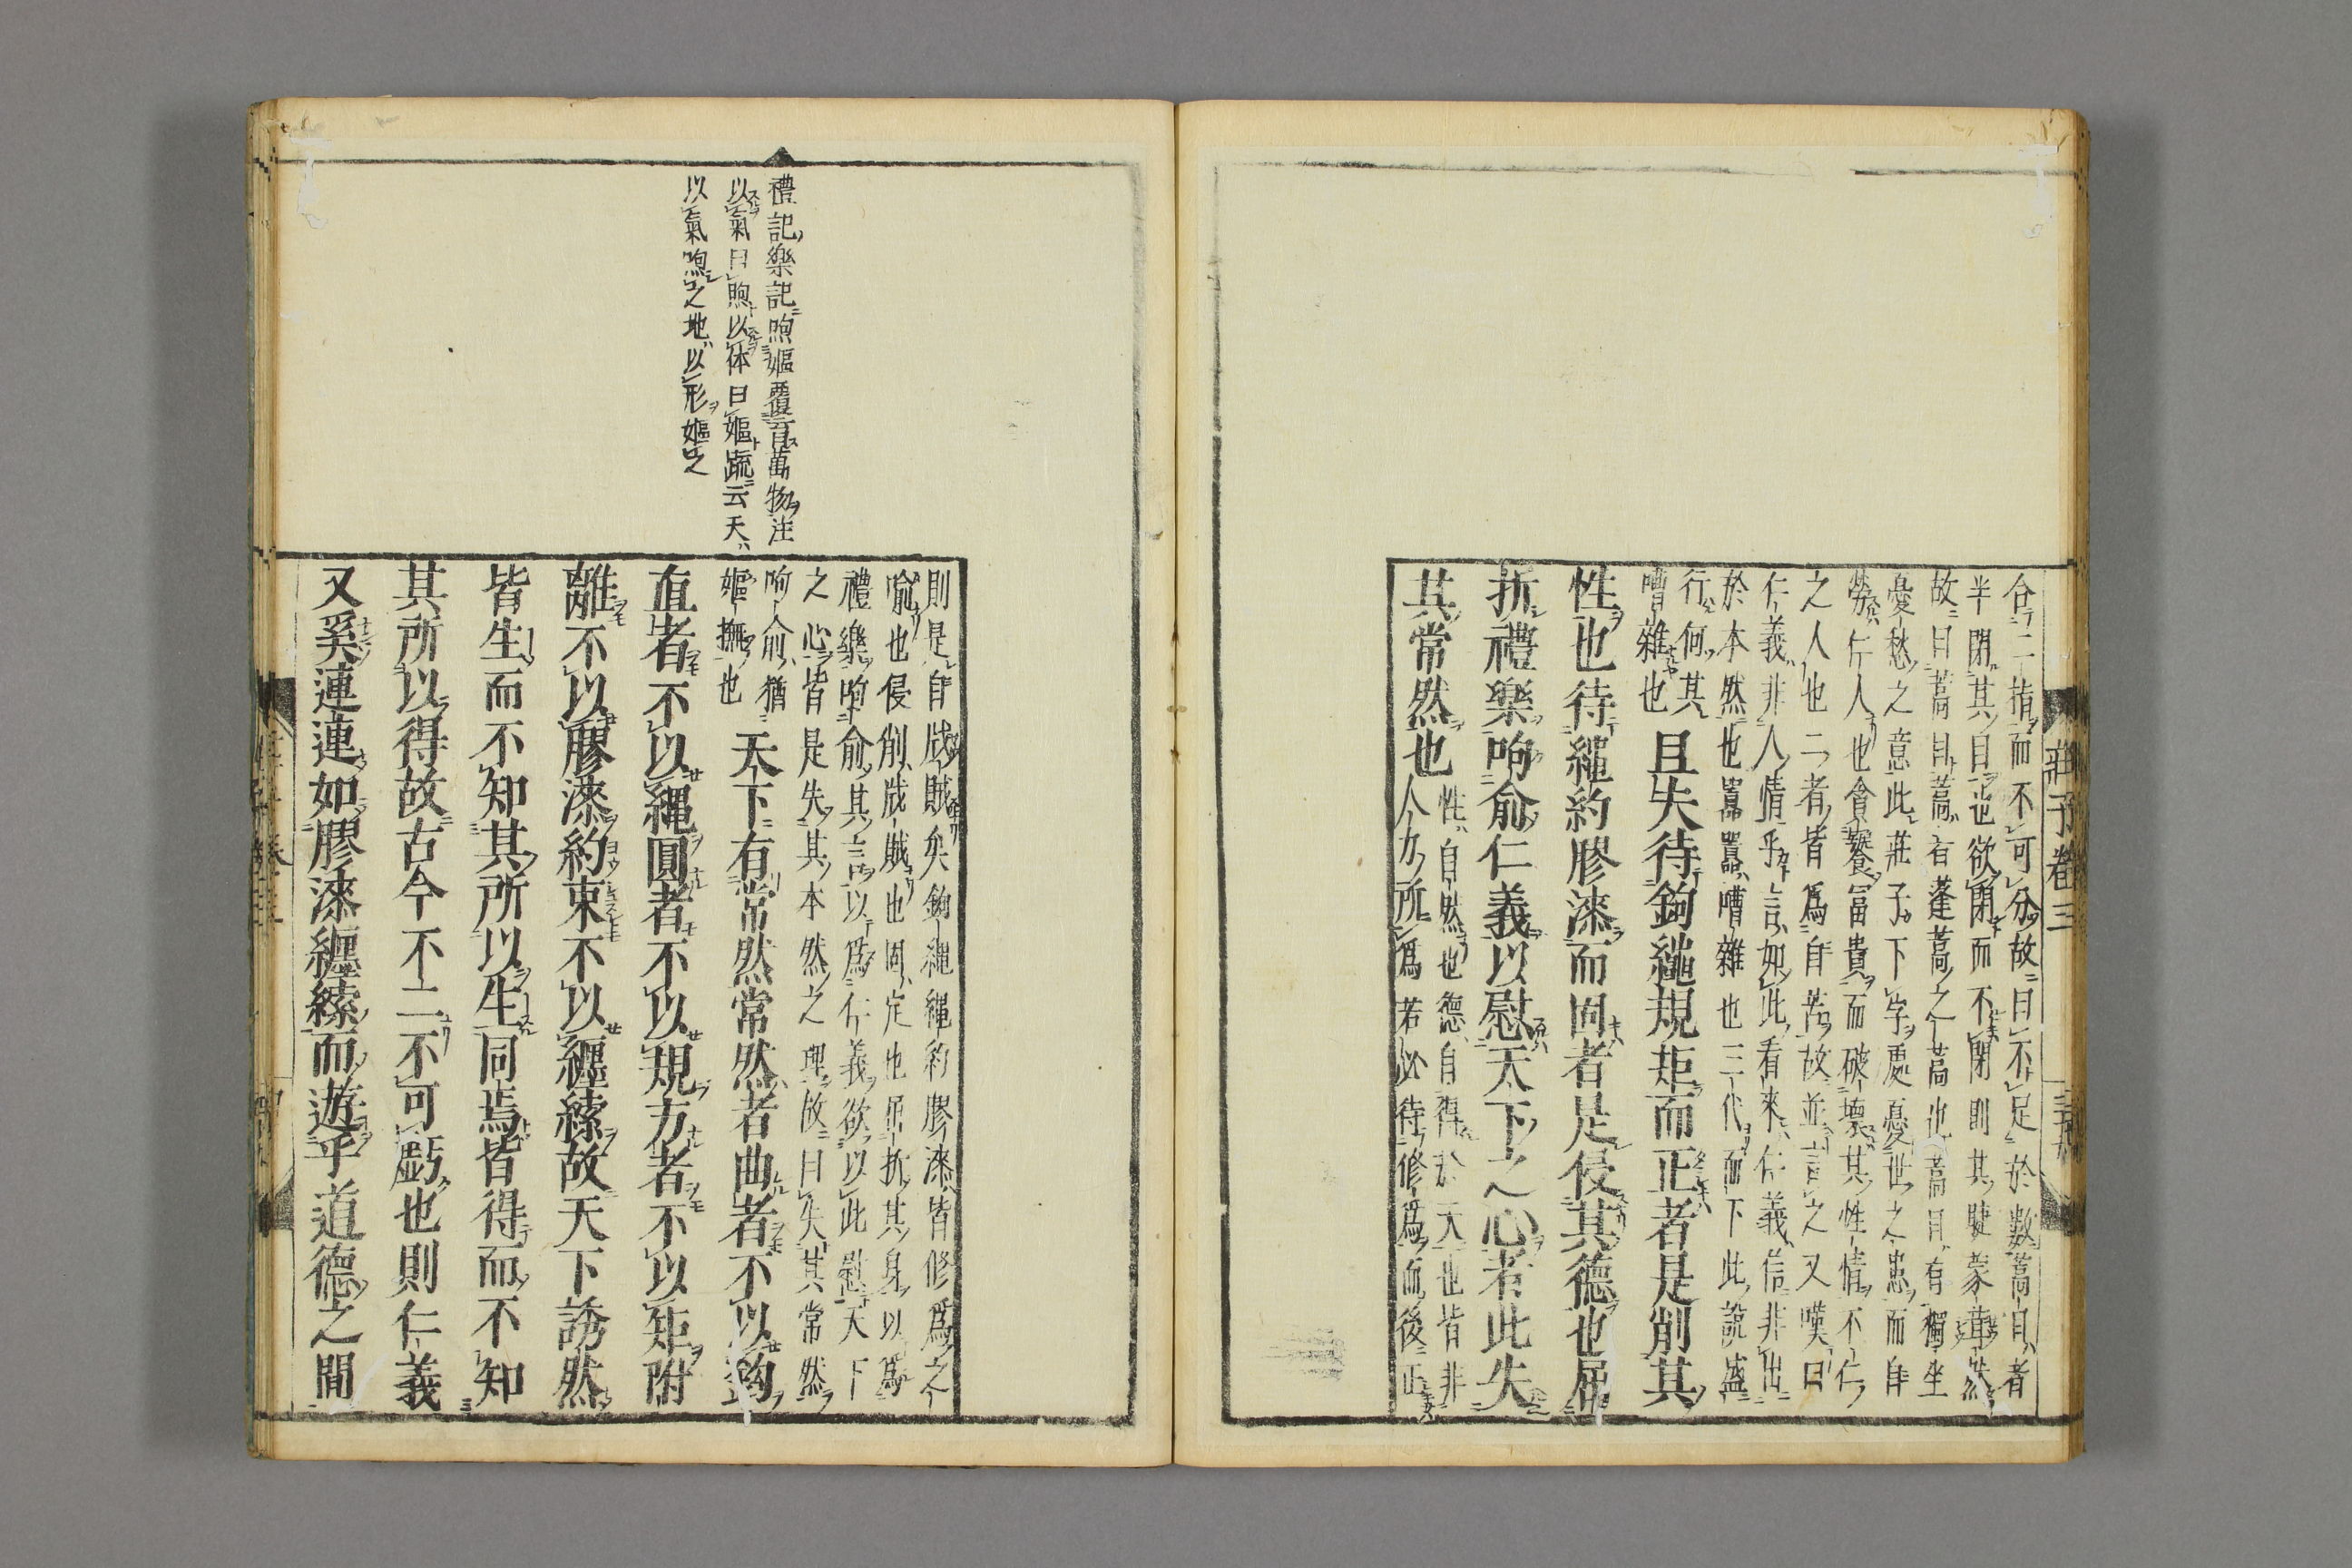 莊子卷三
合二指而不可分故曰不足於數蒿目者
半閉其目也欲閉而不閉則其睫蒙茸然
故曰蒿目蒿者蓬蒿之蒿也蒿目有獨坐
憂愁之意此莊子下字處憂世之患而自
勞仁人也貪饕富貴而破壞其性情不仁
之人也二者皆爲自苦故並言之又嘆曰
仁義非人情乎言如此看來仁義信非出
於本然也囂囂嘈雜也三代而下此說盛
行何其
嘈雜也
且夫待鉤繩規矩而正者是削其
性也待繩約膠漆而固者是侵其德也屈
折禮樂呴俞仁義以慰天下之心者此失
其常然也
性自然也德自得於天也皆非
人力所爲若必待修爲而後正
則是自戕賊矣鉤繩繩約膠漆皆修爲之
喻也侵削戕賊也固定也屈折其身以爲
禮樂呴俞其言以爲仁義欲以此慰天下
之心皆是失其本然之理故曰失其常然
呴俞猶
嫗撫也
天下有常然常然者曲者不以鈎
直者不以繩圓者不以規方者不以矩附
離不以膠漆約束不以纆索故天下誘然
皆生而不知其所以生同焉皆得而不知
其所以得故古今不二不可虧也則仁義
又奚連連如膠漆纆索而遊乎道德之間
禮記樂記呴嫗覆育萬物注
以氣曰煦以体曰嫗疏云天
以氣呴之地以形嫗之